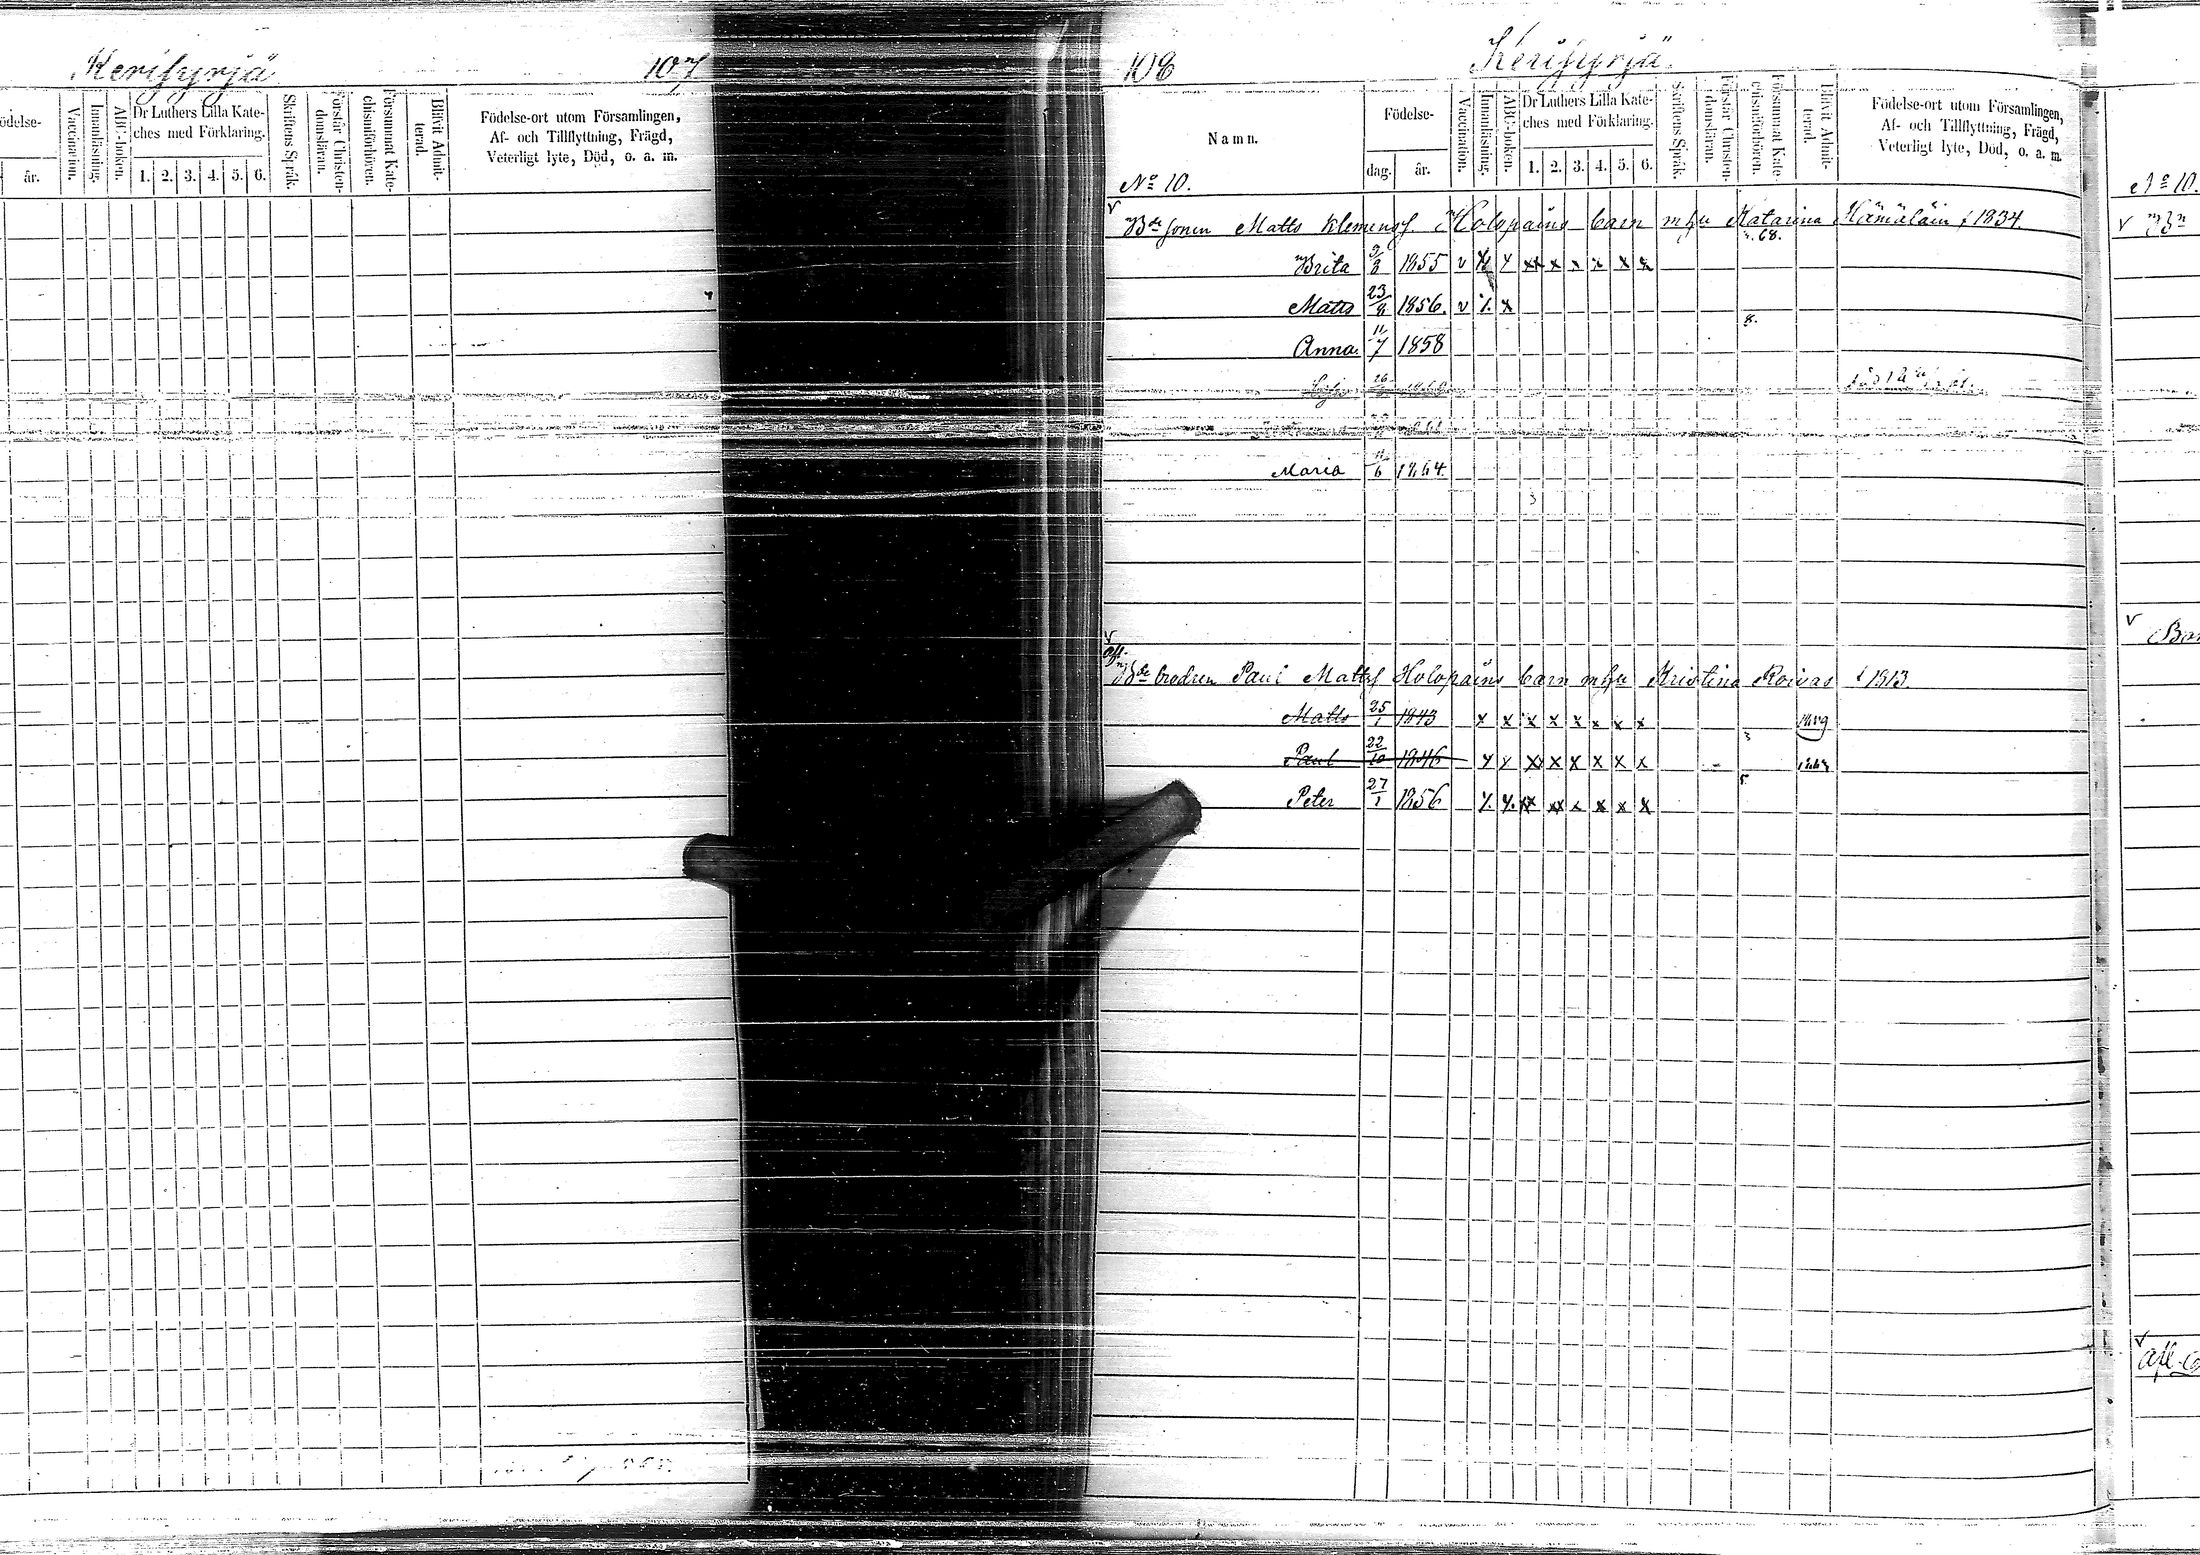 Kerisyrjä 107
ödelse-
år.
Vaccination.
Innanläsning.
ABC-boken.
Dr Luthers Lilla Kate-
ches med Förklaring.
1. 2. 3. 4. 5. 6.
Skriftens Språk.
Förstår Christen-
domsläran.
Försummat Kate-
chismiförhören.
Blifvit Admit-
terad.
Födelse-ort utom Församlingen,
Af- och Tillflyttning, Frägd,
Veterligt lyte, Död, o. a. m.
108 Kerisyrjä
Namn.
No 10.
Födelse-
dag. år.
Vaccination.
Innanläsning.
ABC-boken.
Dr Luthers Lilla Kate-
ches med Förklaring.
1. 2. 3. 4. 5. 6.
Skriftens Språk.
Förstår Christen-
domsläran.
Försummat Kate-
chismiförhören.
Blifvit Admit-
terad.
Födelse-ort utom Församlingen,
Af- och Tillflyttning, Frägd,
Veterligt lyte, Död, o. a. m.
v Bde sonen Matts Klemenss. Holopains barn m hu Katarina Hämäläin f 1834.
68.
Brita 1855 v x x x x x x x
Matts 23/8 1856. v x x
8.
Anna. 11/7 1858
26
Maria 11/6 1864.
v
Bde brodren Paul Mattss Holopains barn m hu Kristina Roivas f 1813.
Matts 25/1 1843 x x x x x x x x
Paul 22/10 1846 x x x x x x x x
Peter 27/1 1856 x x x x x x x x
5.
No 10.
v
v